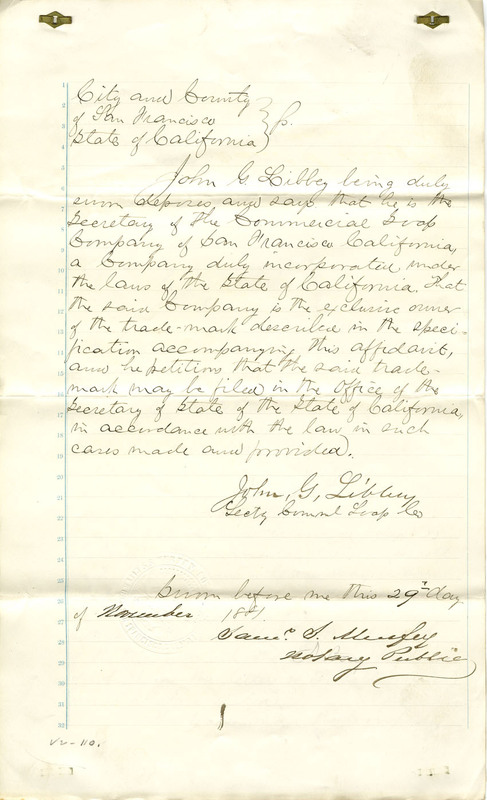 City and County
of San Francisco } ss.
State of California
John G. Libbey being duly
sworn deposes and says that he is the
Secretary of the Commercial Soap
Company of San Francisco California,
a Company duly incorporated under
the laws of the State of California. That
the said Company is the exclusive owner
of the trade-mark described in the speci-
fication accompanying this affidavit,
and he petitions that the said trade-
mark may be filed in the Office of the
Secretary of State of the State of California,
in accordance with the law in such
cases made and provided.
John, G, Libbey
Secty Comml Soap Co
Sworn before me this 29th day
of November 1881.
Saml. S. Murfey
Notary Public
1
2
3
4
5
6
7
8
9
10
11
12
13
14
15
16
17
18
19
20
21
22
23
24
25
26
27
28
29
30
31
32